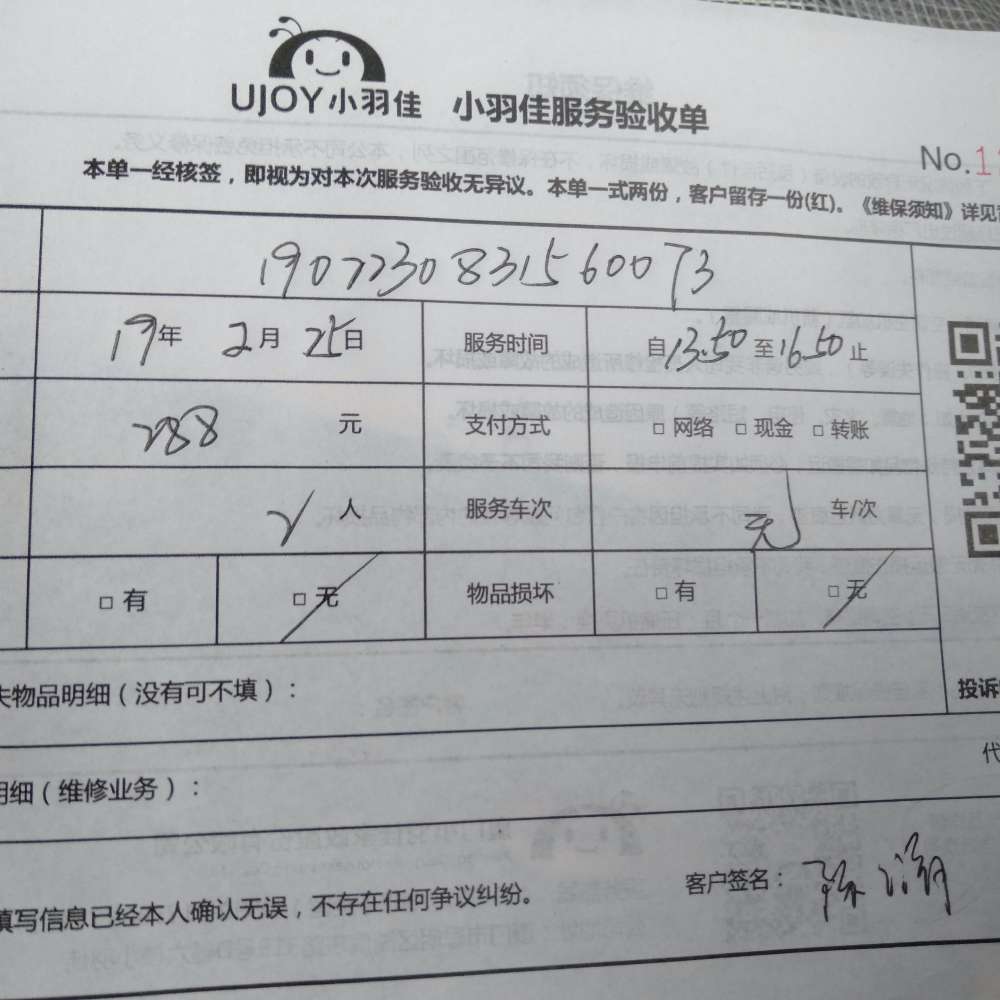 UJOY小羽佳 小羽佳服务验收单
No.1
本单一经核签，即视为对本次服务验收无异议。本单一式两份，客户留存一份(红)。《维保须知》详见
1907230831560073
19年 2月 25日 服务时间 自13.50至16.50止
288 元 支付方式 □ 网络 □ 现金 □ 转账
2 人 服务车次 无 车/次
□ 有 □ 无 物品损坏 □ 有 □ 无
失物品明细（没有可不填）：
投诉
代
明细（维修业务）：
客户签名：
填写信息已经本人确认无误，不存在任何争议纠纷。